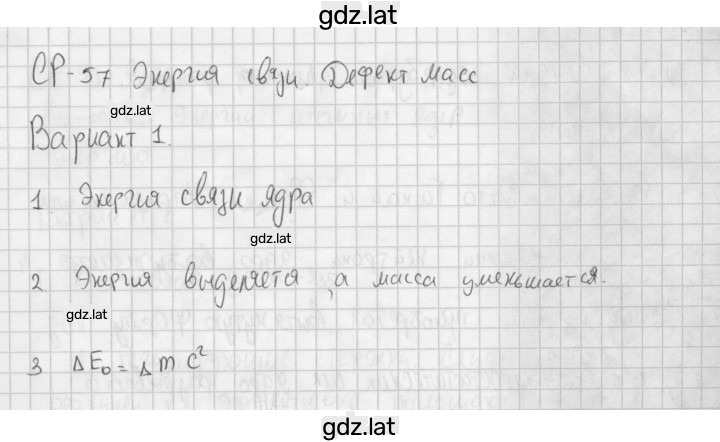 gdz.lat
СР-57 Энергия связи. Дефект масс
gdz.lat
Вариант 1.
1. Энергия связи ядра
gdz.lat
2 Энергия выделяется, а масса уменьшается.
gdz.lat
3 ΔE₀ = Δ m c²
gdz.lat